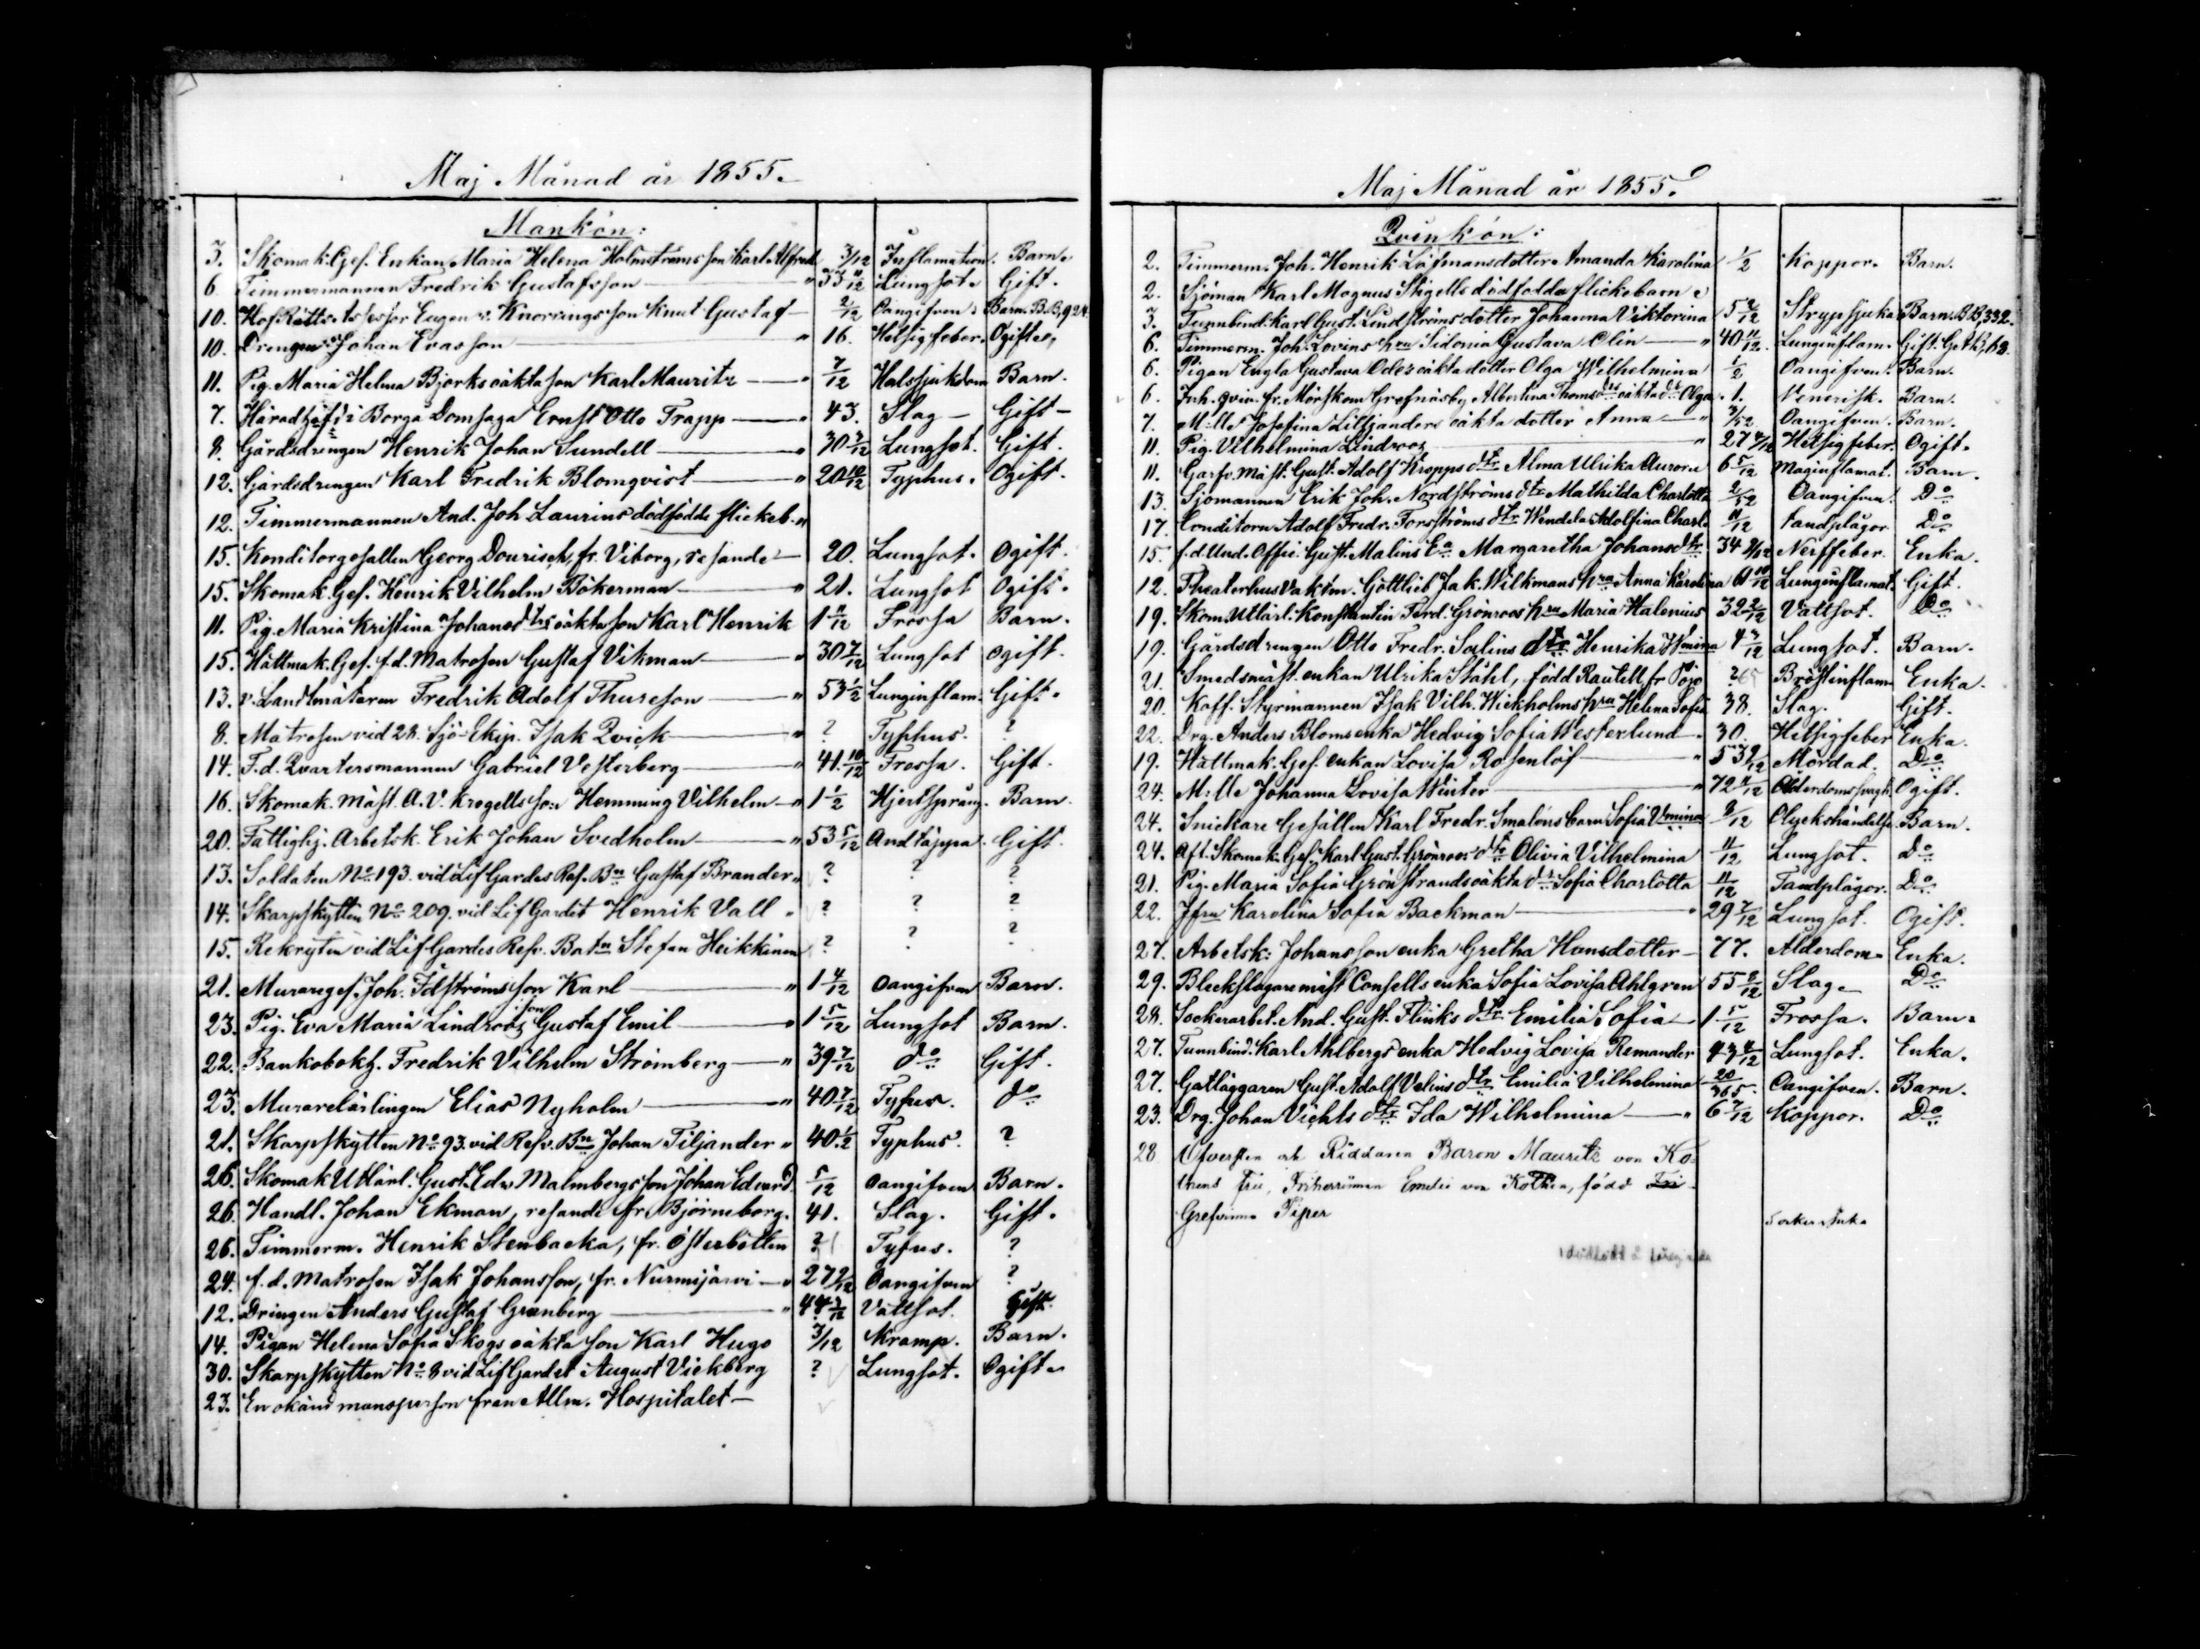 Maj Månad år 1855.
Mankön:
3. Skomak. Ges. Enkan Maria Helena Holmströms son Karl Alfred 3/12 Inflamation. Barn.
6 Timmermannen Fredrik Gustafsson — " 33 11/12 Lungsot. Gift.
10. HofRätts Assessor Eugen v. Knorrings son Knut Gustaf — 2/12 Oangifven. Barn. B.B. 924.
10. Drengen Johan Evasson — " 16. Hetsig feber. Ogift.
11. Pig. Maria Helena Björks oäkta son Karl Mauritz — " 7/12 Halssjukdom Barn.
7. Häradshöfd. i Borgå Domsaga Ernst Otto Trapp — " 43. Slag — Gift —
8. Gårdsdrengen Henrik Johan Sundell — " 30 3/12 Lungsot. Gift.
12. Gårdsdrengen Karl Fredrik Blomqvist — " 20 10/12 Typhus. Ogift.
12. Timmermannen And. Joh. Laurins dödfödde flickeb. "
15. Konditorgesällen Georg Dourisch, fr. Viborg, resande — 20. Lungsot. Ogift.
15. Skomak. Ges. Henrik Vilhelm Bökerman — " 21. Lungsot Ogift.
11. Pig. Maria Kristina Johansdtrs oäkta son Karl Henrik 1 11/12 Frossa Barn.
15. Hattmak. Ges. f.d. Matrosen Gustaf Vikman — " 30 7/12 Lungsot Ogift.
13. v. Landtmätaren Fredrik Adolf Thureson — " 53 1/2 Lunginflam. Gift.
8. Matrosen vid 28. Sjö-Ekip. Isak Qvick — " ? Typhus. ?
14. F.d. Qvartersmannen Gabriel Vesterberg — " 41 10/12 Frossa. Gift.
16. Skomak. Mäst. A. V. Krogells son Hemming Vilhelm — " 1 1/2 Hjertsprång. Barn.
20. Fattighj. Arbetsk. Erik Johan Svedholm — " 53 5/12 Andtäppa. Gift.
13. Soldaten No 193. vid LifGardes Res. Bn Gustaf Brander " ? ? ?
14. Skarpskytten No 209. vid LifGardet Henrik Vall " ? ? ?
15. Rekryten vid LifGardes Resv. Batn Stefan Heikkinen ? ? ?
21. Mureges. Joh. Idströms son Karl — " 1 4/12 Oangifven Barn.
23. Pig. Eva Maria Lindroos son Gustaf Emil — " 1 5/12 Lungsot Barn.
22. Bankobokh. Fredrik Vilhelm Strömberg — " 39 7/12 do Gift.
23. Murarelärlingen Elias Nyholm — " 40 7/12 Tyfus. do
21. Skarpskytten No 93. vid Resv. Bn Johan Tiljander " 40 1/2 Typhus. ?
26. Skomak Utlärl. Gust. Edv. Malmbergs son Johan Edvard 5/12 Oangifven Barn.
26. Handl. Johan Ekman, resande fr. Björneborg. 41. Slag. Gift.
26. Timmerm. Henrik Stenbacka, fr. Österbotten ? Tyfus. ?
24. f.d. Matrosen Isak Johansson, fr. Nurmijärvi — " 27 9/12 Oangifven ?
12. Drengen Anders Gustaf Grönberg — " 44 3/12 Vattsot. Gift.
14. Pigan Helena Sofia Skogs oäkta son Karl Hugo 3/12 Kramp. Barn.
30. Skarpskytten No 8 vid LifGardet August Vickberg ? Lungsot. Ogift.
23. En okänd mansperson från Allm. Hospitalet —
Maj Månad år 1855.
Qvinkön:
2. Timmerm. Joh. Henrik Löfmans dotter Amanda Karolina 1/2 Koppor. Barn.
2. Sjöman Karl Magnus Stigells dödfödda flickebarn
3. Tunnbind. Karl Gust. Lindströms dotter Johanna Viktorina 5 2/12 Strypsjuka Barn. B.B. 332.
6. Timmerm. Joh. Lovins hru Sidonia Gustava Olin — " 40 11/12 Lunginflam. Gift.
6. Pigan Engla Gustava Odes oäkta dotter Olga Wilhelmina 1/2 Oangifven. Barn.
6. Inh. qvin. fr. Mörskom Grefnäsby Albertina Thomsdrs oäkta dr Olga 1. Venerisk. Barn.
7. M:lle Josefina Lilljanders oäkta dotter Anna — " 3/52 Oangifven. Barn.
11. Pig. Vilhelmina Lindroos — " 27 4/12 Hetsigfeber. Ogift.
11. Garfv. Mäst. Gust. Adolf Kropps dtr Alma Ulrika Aurora 6 5/12 Maginflamat. Barn.
13. Sjömannen Erik Joh. Nordströms dtr Mathilda Charlotta 2/52 Oangifven. Do
17. Conditorn Adolf Fredr. Forsströms dtr Wendela Adolfina Charl. 11/12 Tandplågor Do
15. f.d. Und. Offic. Gust. Malins Ea Margaretha Johansdtr 34 8/12 Nerffeber. Enka.
12. Theaterhus Vaktm. Gottlieb Jak. Wilkmans hru Anna Karolina 61 10/12 Lunginflamat. Gift.
19. Skom. Utlärl. Konstantin Ferd. Grönroos hru Maria Halenius 32 2/12 Vattsot. Do
19. Gårdsdrengen Otto Fredr. Salins dtr Henrika Wmina 4 3/12 Lungsot. Barn.
21. Smedsmäst. enkan Ulrika Ståhl, född Rautell fr Pojo ? 65 Bröstinflam. Enka.
20. Koff. Styrmannen Isak Vilh. Wickholms hru Helena Sofia 38. Slag. Gift.
22. Drg. Anders Bloms enka Hedvig Sofia Westerlund . 30. Hetsigfeber Enka.
19. Hattmak. Ges. enkan Lovisa Rosenlöf — " 53 9/12 Mördad. Do
24. M:lle Johanna Lovisa Winter — 72 11/12 Ålderdomssvagh. Ogift.
24. Snickare Gesällen Karl Fredr. Smaléns barn Sofia Vmina 8/12 Olyckshändelse. Barn.
24. Afl. Skomak. Ges. Karl Gust. Grönroos dtr Olivia Vilhelmina 11/12 Lungsot. Do
21. Pig. Maria Sofia Grönstrands oäkta dtr Sofia Charlotta 11/12 Tandplågor. Do
22. Jfru Karolina Sofia Backman — " 29 7/12 Lungsot. Ogift.
27. Arbetsk: Johansson enka Gretha Hansdotter — 77. Ålderdom Enka.
29. Bleckslagaremäst Consells enka Sofia Lovisa Ahlgren 55 8/12 Slag Do
28. Sockerarbet. And. Gust. Flinks dtr Emilia Sofia — 1 5/12 Frossa. Barn.
27. Tunnbind. Karl Ahlbergs enka Hedvig Lovisa Remander 43 4/12 Lungsot. Enka.
27. Gatläggaren Gust. Adolf Velins dtr Emilia Vilhelmina 20/365. Oangifven. Barn.
23. Drg. Johan Viehls dtr Ida Wilhelmina — " 6 7/12 Koppor. Do
28 Öfversten och Riddaren Baron Mauritz von Ko-
thens Fru, Friherrinnan Emelie von Kothen, född Fri
Grefvinna Piper